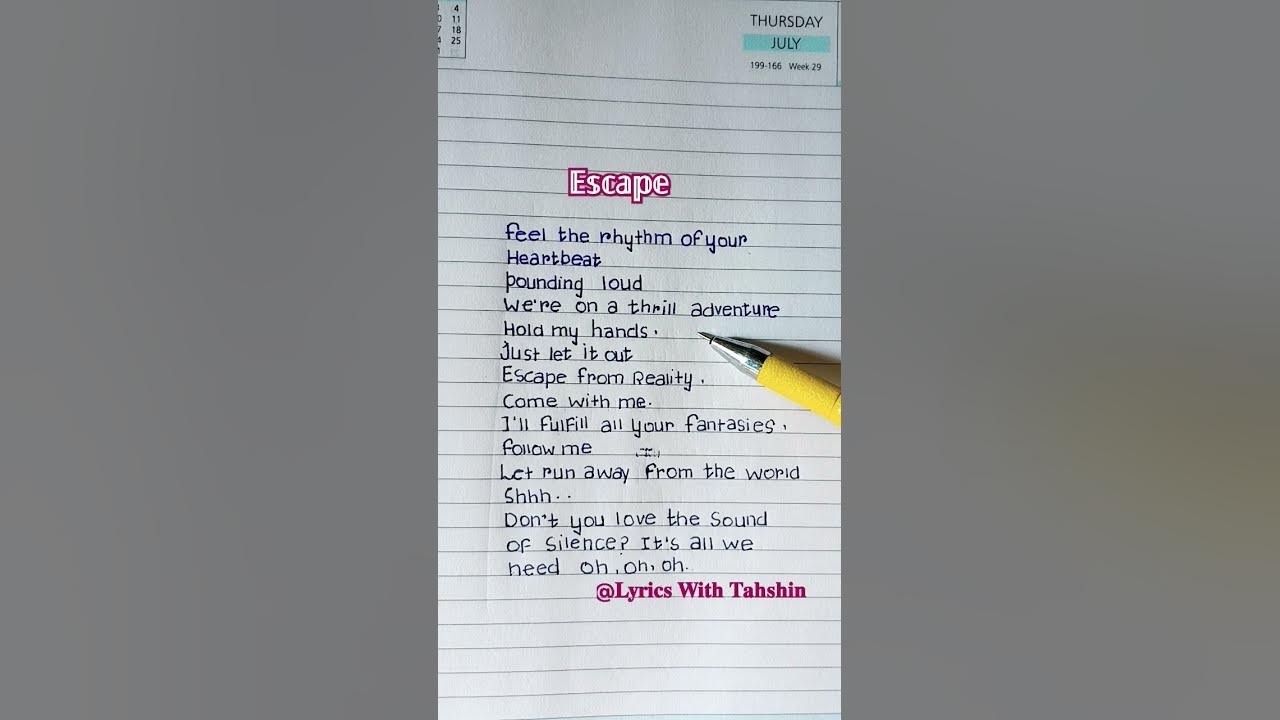 4
11
18
25
THURSDAY
JULY
199-166 Week 29
Escape
feel the rhythm of your
Heartbeat
pounding loud
We're on a thrill adventure
Hold my hands.
Just let it out
Escape from Reality.
Come with me.
I'll fulfill all your fantasies.
follow me
Let run away from the world
Shhh..
Don't you love the Sound
of Silence? It's all we
need oh, oh, oh.
@Lyrics With Tahshin